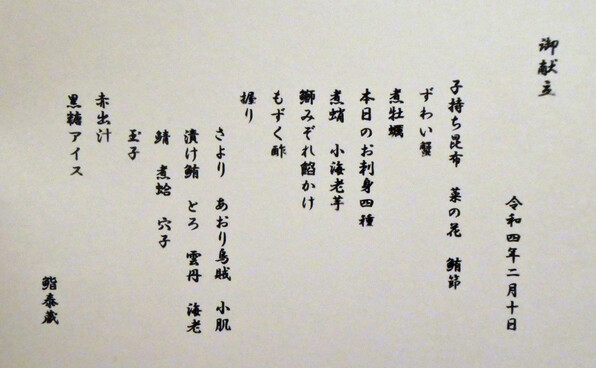 御献立
令和四年二月十日
子持ち昆布 菜の花 鮪節
ずわい蟹
煮牡蠣
本日のお刺身四種
煮蛸 小海老芋
鰤みぞれ餡かけ
もずく酢
握り
さより あおり烏賊 小肌
漬け鮪 とろ 雲丹 海老
鯖 煮蛤 穴子
玉子
赤出汁
黒糖アイス
鮨泰蔵